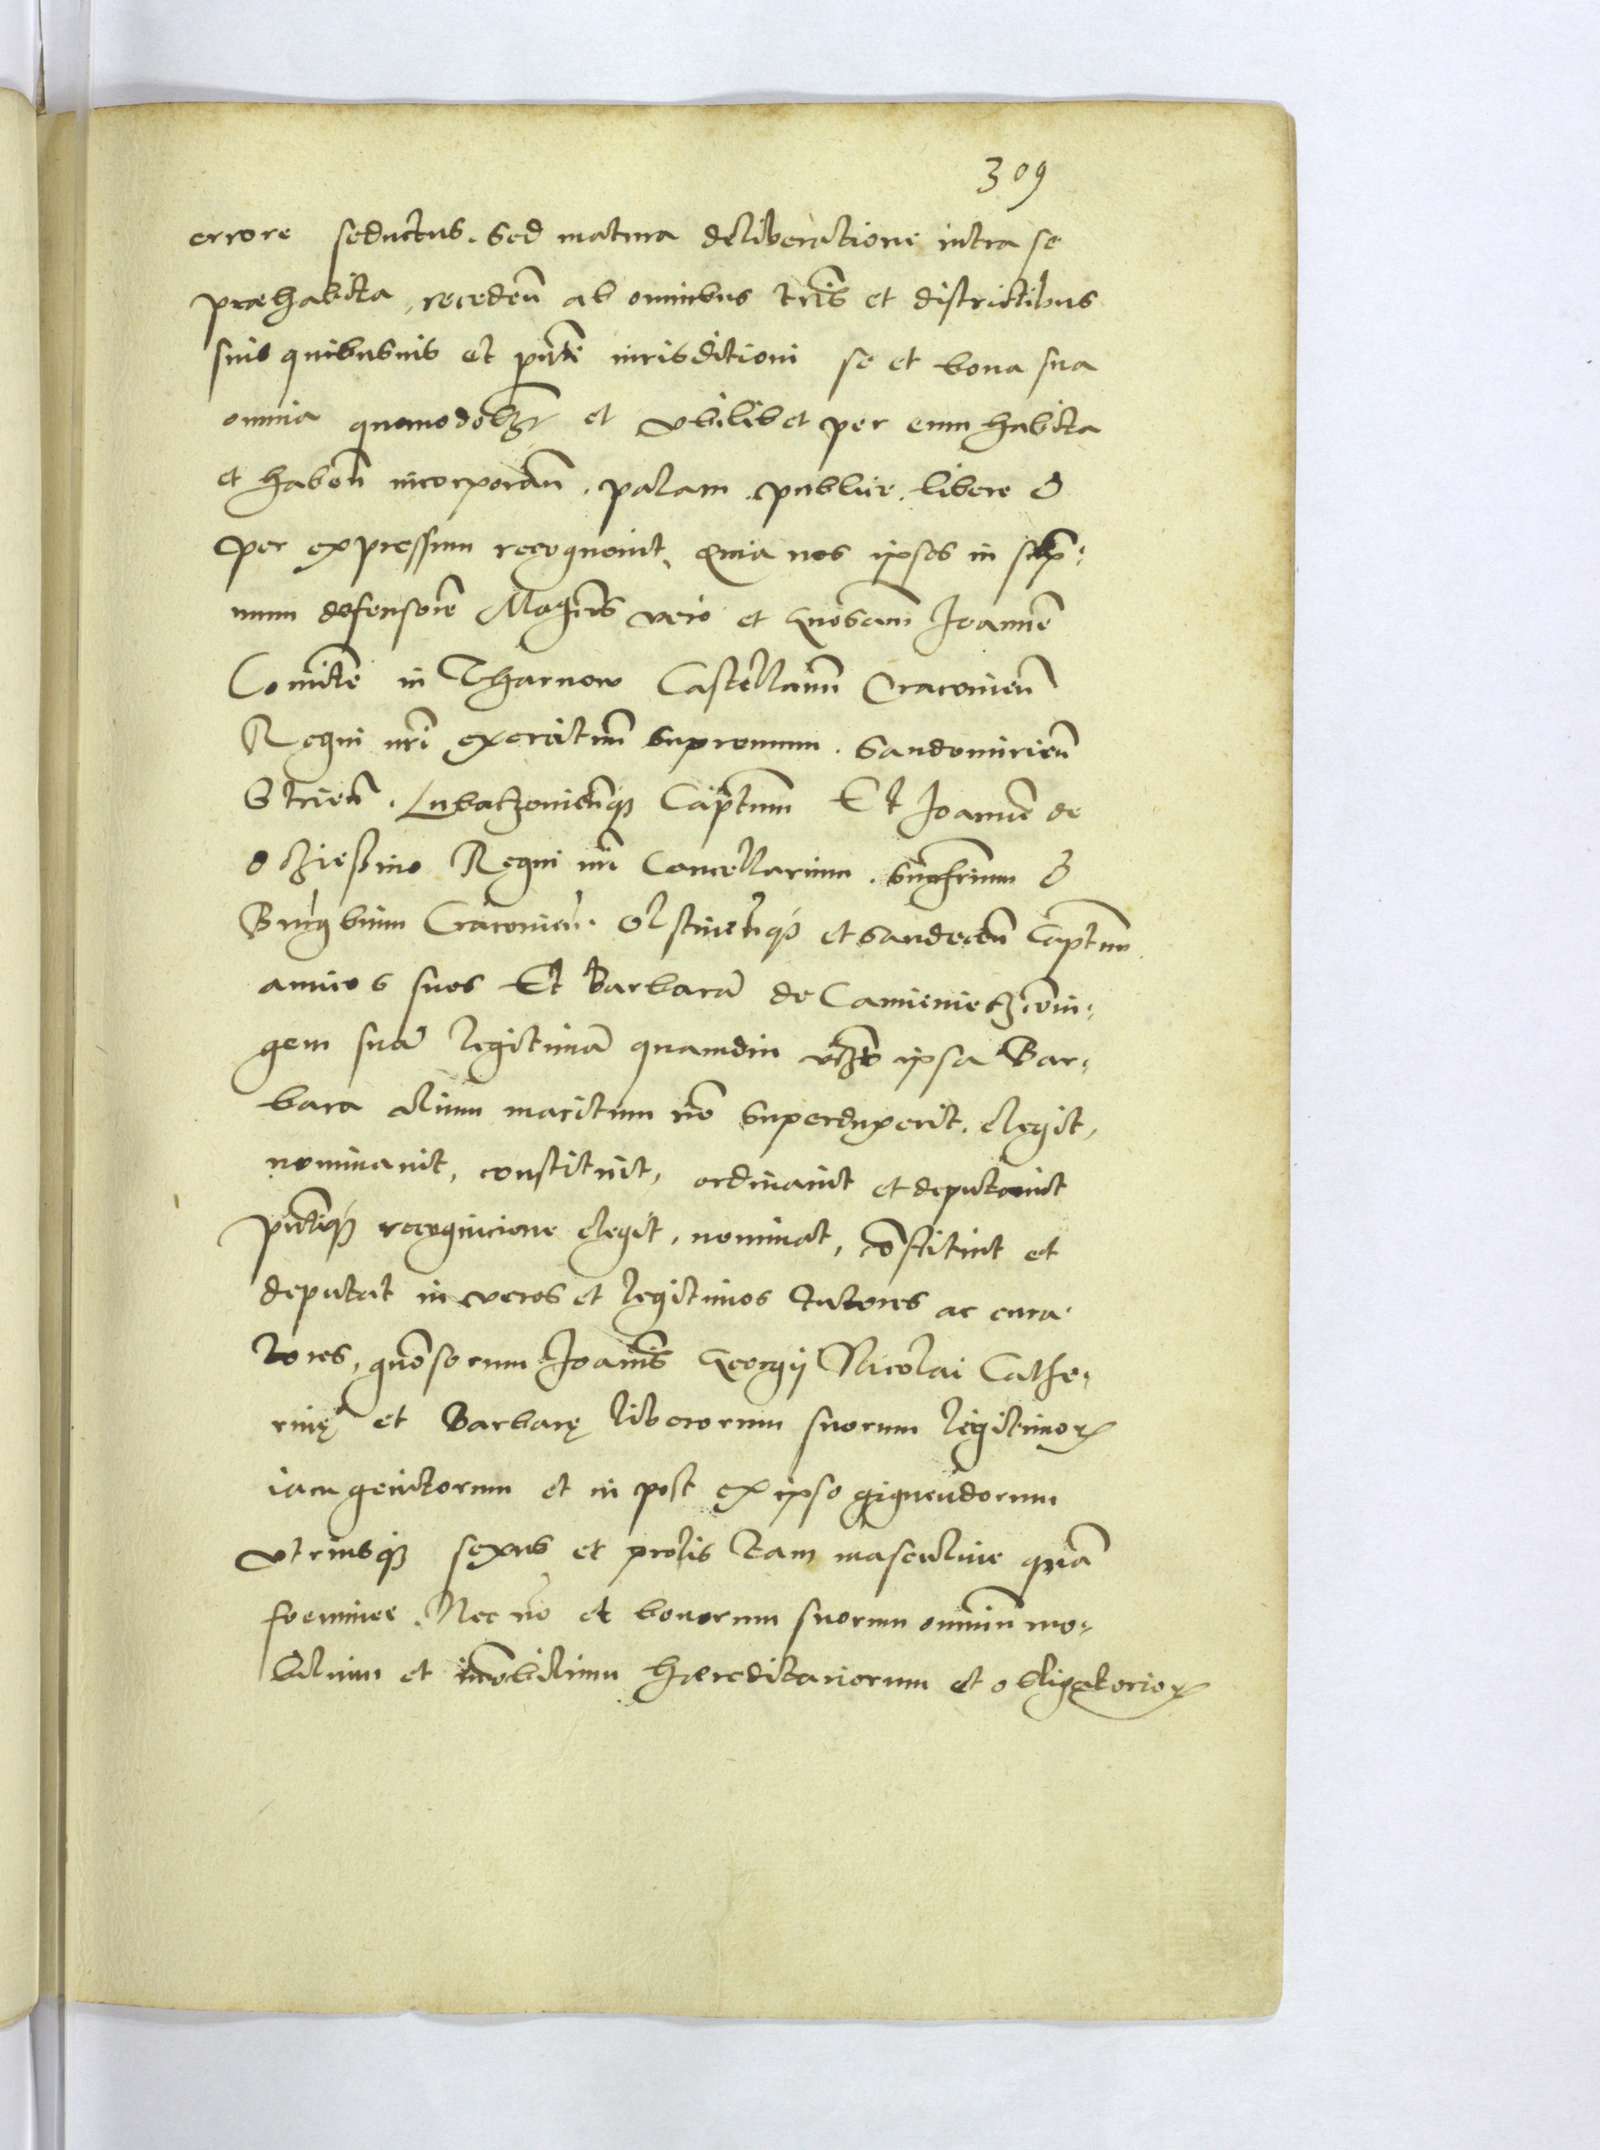 309
errore seductus. Sed matura deliberatione intra se
præhabita, receden̄ ab omnibus tr̄is et districtibus
suis quibusuis et pn̄ti iurisditioni se et bona sua
omnia quomodolꝫ et vbilibet per eum habita
et haben̄ incorporan̄. palam. publice. libere &
per expressum recognouit, Quia nos ipsos in sup̄-
mum defensorē Magcōs vero et Gn̄osam Joannē
Comitē in Tharnow Castellanū Cracouien̄
Regni nr̄i exercituū Supremum. Sandomirien̄
Strien̄. Lubaczouien̄qꝫ Cap̄tum Et Joannē de
Oczießino Regni nr̄i Cancellarium. &
Burgbium Cracouien̄. Olstinen̄qꝫ et Sandecen̄ Cap̄tum
amicos suos Et Barbarā de Camienietz cōiu-
gem suā legitimā quamdiu ipsa Bar-
bara alium maritum nō Superduxerit. elegit,
nominauit, constituit, ordinauit et deputauit
pn̄tiqꝫ recognicione elegit, nominat, cōstituit et
deputat in veros et legitimos tutores ac cura
tores, gn̄osorum Joannis Georgij Nicolai Cathe-
rinę et Barbarę liberorum suorum legitimoꝝ
iam genitorum et in post ex ipso gignendorum
vtriusqꝫ sexus et prolis tam masculine quā
foeminee. Nec nō et bonorum suorum omniū mo-
bilium et imōbilium hæreditariorum et obligatorioꝝ